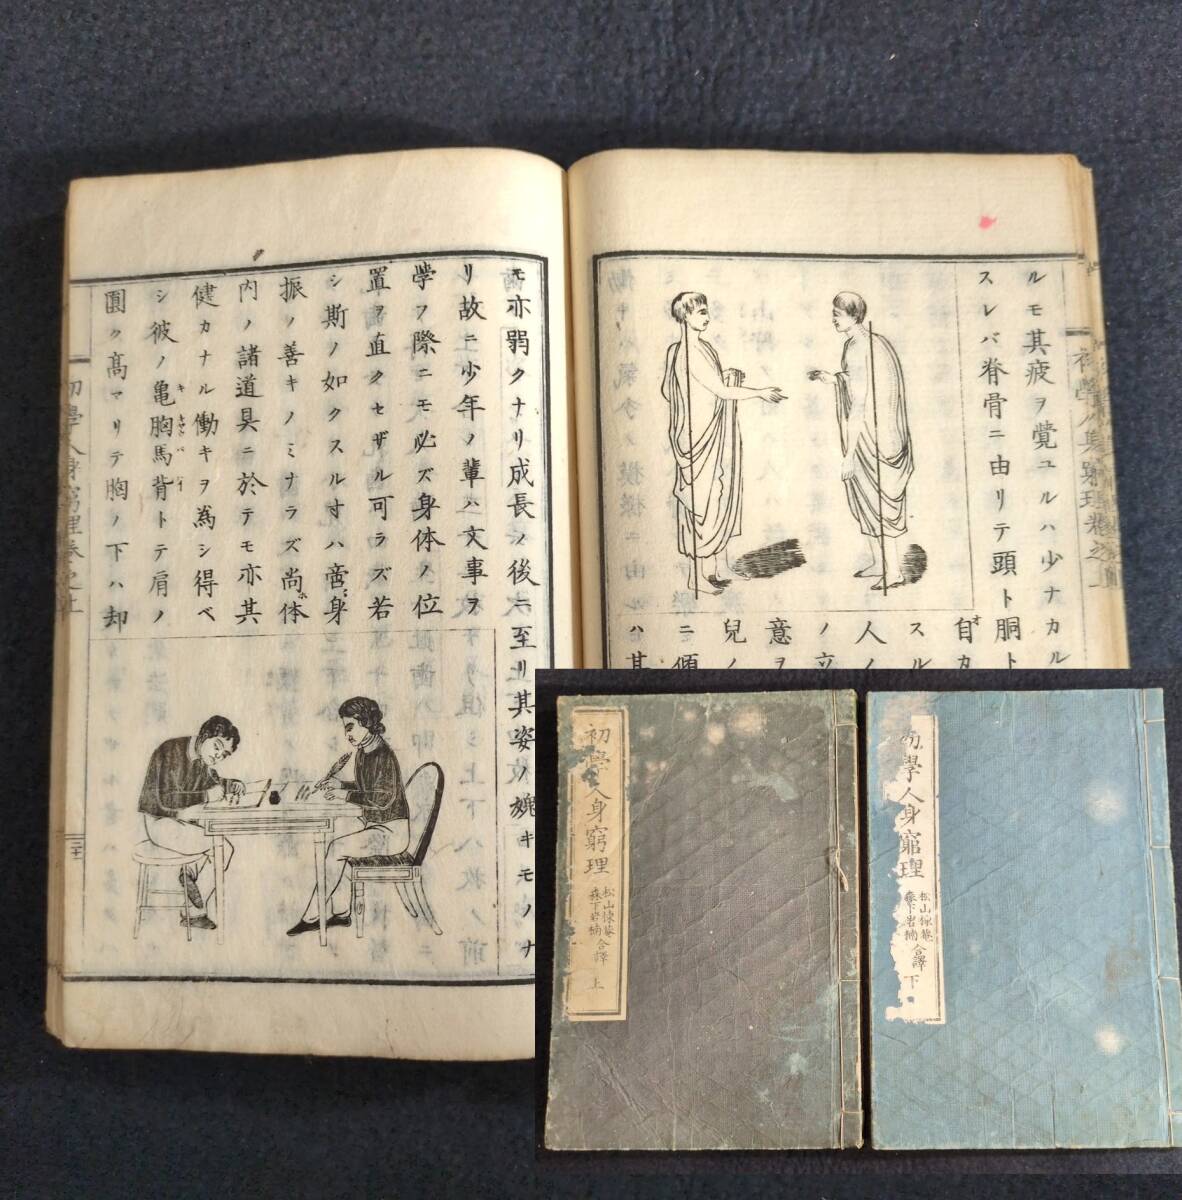 ルモ其疲ヲ覺ユルハ少ナカル
スレバ脊骨ニ由リテ頭ト胴ト
自カ
スル
人ノ
ノ立
意ヲ
兒ノ
ニ傾
ハ其
初學人身窮理卷之上
モ亦弱クナリ成長ノ後ニ至リ其姿ノ媿キモノナ
リ故ニ少年ノ輩ハ文事ヲ
學フ際ニモ必ズ身体ノ位
置ヲ直クセザル可ラズ若
シ斯ノ如クスルヿハ啻身
振ノ善キノミナラズ尚体
内ノ諸道具ニ於テモ亦其
健カナル働キヲ為シ得ベ
シ彼ノ亀胸馬背トテ肩ノ
圓ク髙マリテ胸ノ下ハ却
初學人身窮理卷之上
初學人身窮理
松山棟菴
森下岩楠
合譯
上
初學人身窮理
松山棟菴
森下岩楠
合譯
下